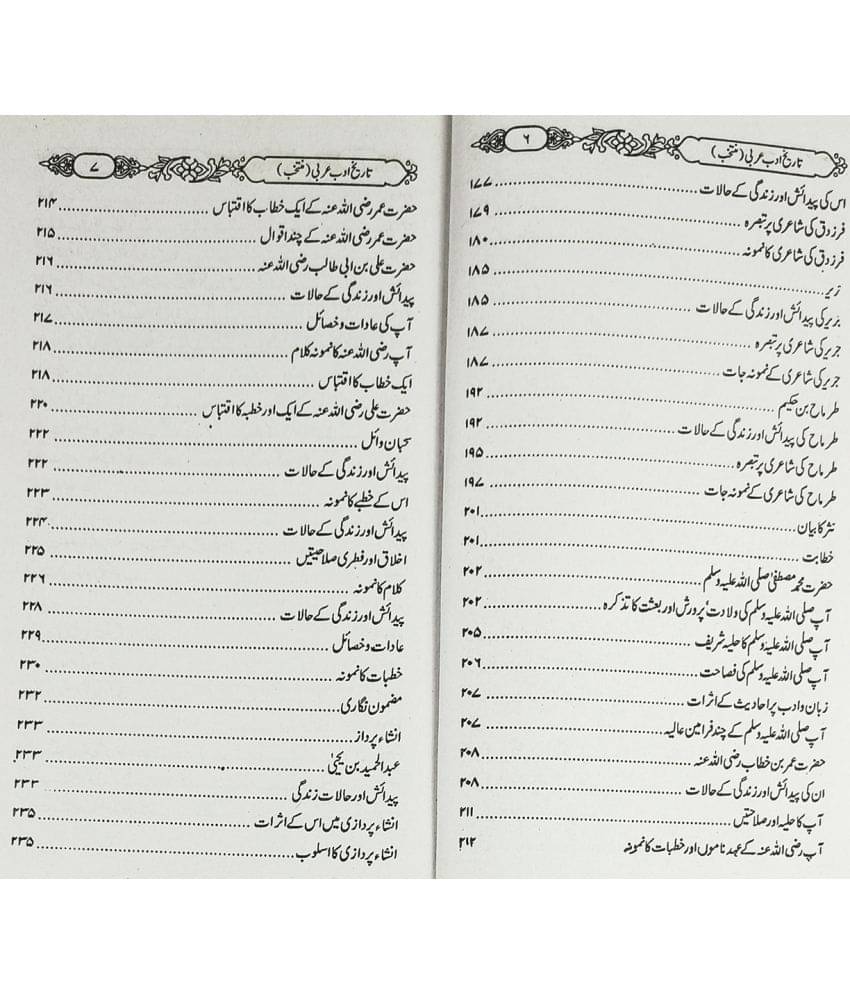 ۶ تاریخ ادب عربی (منتخب)
اس کی پیدائش اور زندگی کے حالات ۱۷۷
فرزدق کی شاعری پر تبصرہ ۱۷۹
فرزدق کی شاعری کا نمونہ ۱۸۰
زیر ۱۸۵
بریر کی پیدائش اور زندگی کے حالات ۱۸۵
جریر کی شاعری پر تبصرہ ۱۸۷
جریر کی شاعری کے نمونہ جات ۱۸۷
طرماح بن حکیم ۱۹۲
طرماح کی پیدائش اور زندگی کے حالات ۱۹۲
طرماح کی شاعری پر تبصرہ ۱۹۵
طرماح کی شاعری کے نمونہ جات ۱۹۷
نثر کا بیان ۲۰۱
خطابت ۲۰۱
حضرت محمد مصطفیٰ صلی اللہ علیہ وسلم ۲۰۲
آپ صلی اللہ علیہ وسلم کی ولادت' پرورش اور بعثت کا تذکرہ ۲۰۲
آپ صلی اللہ علیہ وسلم کا حلیہ شریف ۲۰۵
آپ صلی اللہ علیہ وسلم کی فصاحت ۲۰۶
زبان و ادب پر احادیث کے اثرات ۲۰۷
آپ صلی اللہ علیہ وسلم کے چند فرامین عالیہ ۲۰۷
حضرت عمر بن خطاب رضی اللہ عنہ ۲۰۸
ان کی پیدائش اور زندگی کے حالات ۲۰۸
آپ کا حلیہ اور صلاحتیں ۲۱۱
آپ رضی اللہ عنہ کے عہد ناموں اور خطبات کا نمونہ ۲۱۲
۷ تاریخ ادب عربی (منتخب)
حضرت عمر رضی اللہ عنہ کے ایک خطاب کا اقتباس ۲۱۴
حضرت عمر رضی اللہ عنہ کے چند اقوال ۲۱۵
حضرت علی بن ابی طالب رضی اللہ عنہ ۲۱۶
پیدائش اور زندگی کے حالات ۲۱۶
آپ کی عادات و خصائل ۲۱۷
آپ رضی اللہ عنہ کا نمونہ کلام ۲۱۸
ایک خطاب کا اقتباس ۲۱۸
حضرت علی رضی اللہ عنہ کے ایک اور خطبہ کا اقتباس ۲۲۰
سحبان وائل ۲۲۲
پیدائش اور زندگی کے حالات ۲۲۲
اس کے خطبے کا نمونہ ۲۲۳
پیدائش اور زندگی کے حالات ۲۲۴
اخلاق اور فطری صلاحیتیں ۲۲۵
کلام کا نمونہ ۲۲۶
پیدائش اور زندگی کے حالات ۲۲۸
عادات و خصائل ۲۲۹
خطبات کا نمونہ ۲۳۰
مضمون نگاری ۲۳۲
انشاء پرداز ۲۳۳
عبدالحمید بن یحییٰ ۲۳۳
پیدائش اور حالات زندگی ۲۳۳
انشاء پردازی میں اس کے اثرات ۲۳۵
انشاء پردازی کا اسلوب ۲۳۵